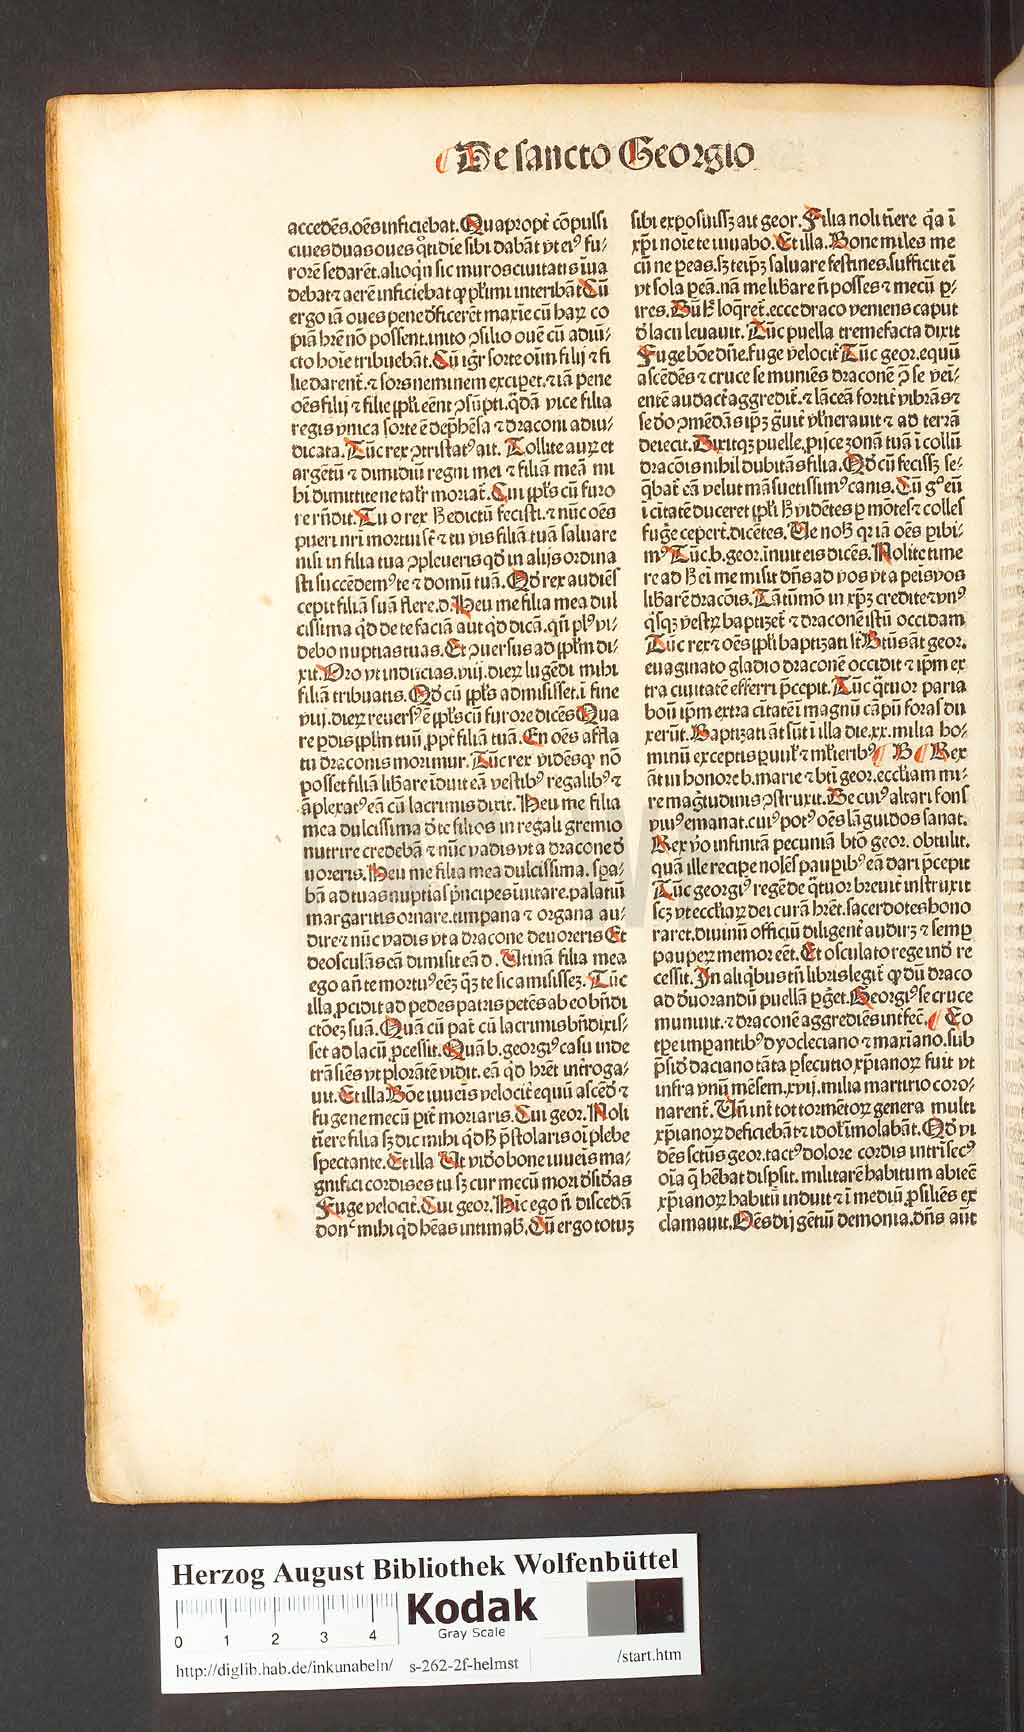 De sancto Georgio
accedēs.oēs inficiebat.Quapropt̄ cōpulsi
ciues duas oues q̄tidie sibi dabāt vt eiꝰ fu⸗
rorē sedarēt.alioqn̄ sic muros ciuitatis īua
debat ⁊ aerē inficiebat ꝙ pl̄imi interibāt Cū
ergo iā oues pene dēficerēt maxīe cū haꝝ co
piā hr̄e nō possent.inito ↄsilio ouē cū adiū⸗
cto hoīe tribuebāt.Cū igr̄ sorte oīm filij ⁊ fi
lie darent̄.⁊ sors neminem exciꝑet.⁊ iā pene
oēs filij ⁊ filie ppl̄i eēnt ↄsūpti.q̄dā vice filia
regis vnica sorte ē dep̄hēsa ⁊ draconi adiu⸗
dicata.Tūc rex ↄtristatꝰ ait.Tollite auꝝ et
argētū ⁊ dimidiū regni mei ⁊ filiā meā mi
bi dimittite ne talr̄ moriat̄.Cui ppl̄s cū furo
re rn̄dit.Tu o rex ß edictū fecisti.⁊ nūc oēs
pueri nr̄i mortui sē ⁊ tu vis filiā tuā saluare
nisi in filia tua ↄpleueris qd̓ in alijs ordina
sti succēdemꝰ te ⁊ domū tuā.Qd̓ rex audiēs
cepit filiā suā flere.d.Heu me filia mea dul
cissima q̓d de te faciā aut q̓d dicā.qn̄ plꝰ vi⸗
debo nuptias tuas.Et ↄuersus ad ppl̄m di⸗
xit.Oro vt inducias.viij.dieꝝ lugēdi mihi
filiā tribuatis.Qd̓ cū ppl̄s admisisset.ī fine
viij.dieꝝ reuersꝰ ē ppl̄s cū furore dicēs Qua
re ꝑdis ppl̄m tuū ꝓpt̄ filiā tuā.En oēs affla
tu draconis morimur.Tūc rex vidēs ꝙ nō
posset filiā lib̄are īduit eā vestibꝰ regalibꝰ ⁊
āplexatꝰ eā cū lacrimis dixit.Heu me filia
mea dulcissima d̓ te filios in regali gremio
nutrire credebā ⁊ nūc vadis vt a dracone d̓
uoreris.Heu me filia mea dulcissima.spa⸗
bā ad tuas nuptias p̄ncipes īuitare.palatiū
margaritis ornare.timpana ⁊ organa au⸗
dire ⁊ nūc vadis vt a dracone deuoreris Et
deosculās eā dimisit eā d.Utinā filia mea
ego an̄ te mortuꝰ eēꝫ q̄ꝫ te sic amisisseꝫ.Tūc
illa ꝓcidit ad pedes patris petēs ab eo bn̄di
ctōeꝫ suā.Quā cū pat̄ cū lacrimis bn̄dixis⸗
set ad lacū ꝓcessit.Quā b.georgiꝰ casu inde
trāsiēs vt plorātē vidit.eā q̓d hr̄et īntroga⸗
uit.Et illa Bōe iuueīs velocit̄ equū ascēd̓ ⁊
fuge ne mecū pīt̄ moriaris.Cui geor.Noli
tīere filia sꝫ dic mihi q̓d ß p̄stolaris oī plebe
spectante.Et illa Ut vid̓o bone iuueīs ma⸗
gnifici cordis es tu sꝫ cur mecū mori d̓sid̓as
Fuge velocit̄.Cui geor.Hic ego n̄ discedā
donꝭ mihi q̓d hēas intimab̄.Cū ergo totuꝫ
sibi exposuissꝫ ait geor.Filia noli tīere q̄a ī
xp̄i noīe te iuuabo.Et illa.Bone miles me
cū ne ꝑeas.sꝫ teip̄ꝫ saluare festines.sufficit eī
vt sola ꝑeā.nā me lib̄are n̄ posses ⁊ mecū ꝑ⸗
ires.Dū h̄ loq̄ret̄.ecce draco veniens caput
d̓ lacu leuauit.Tūc puella tremefacta dixit
Fuge bōe dn̄e.fuge velocit̄ Tūc geor.equū
ascēdēs ⁊ cruce se muniēs draconē ꝯ̄ se vei⸗
entē audact̄ aggredit̄.⁊ lācēā fortit̄ vibrās ⁊
se deo ↄmēdās ip̄ꝫ g̓uit̄ vl̓nerauit ⁊ ad terrā
deiecit.Dixitqꝫ puelle,ꝓijce zonā tuā ī collū
dracōis nihil dubitās filia.Qd̓ cū fecissꝫ se⸗
q̄bat̄ eā velut mā suetissimꝰ canis.Cū gͦ eū
ī ciitatē duceret ppl̓i ß vidētes ꝑ mōtes ⁊ colles
fuge cepert̄.dicētes.Ue nob̄ qr iā oēs ꝑibi⸗
mꝰ Tūc.b.geor.īnuit eis dicēs.Nolite time
re ad ß eī me misit dn̄s ad vos vt a peīs vos
lib̄arē dracōis.Tātūmō in xp̄ꝫ credite ⁊ vnꝰ
q̓sqꝫ vestrꝝ baptizet̄ ⁊ draconē istū occidam
Tūc rex ⁊ oēs ppl̓i baptizati st̄ Btūs āt geor.
euaginato gladio draconē occidit ⁊ ip̄m ex
tra ciuitatē efferri p̄cepit.Tūc q̄tuor paria
boū ip̄m extra cītatē ī magnū cāpū foras du
xerūt.Baptizati āt sūt ī illa die.xx.milia ho⸗
minū exceptis ꝑuul̓ ⁊ ml̓ieribꝰ B Rex
āt in honorē b.marie ⁊ bt̄i geor.eccl̓iam mi⸗
re magītudinis ↄstruxit.De cuiꝰ altari fons
viuꝰ emanat.cuiꝰ potꝰ oēs lāguidos sanat.
Rex v̓o infinitā pecuniā btō geor.obtulit.
quā ille recipe nolēs pauꝑibꝰ eā dari p̄cepit
Tūc georgiꝰ regē de q̄tuor breuit̄ instruxit
scꝫ vt eccl̓iaꝝ dei curā hr̄et.sacerdotes hono
raret.diuinū officiū diligent̄ audiꝝ ⁊ semꝑ
pauꝑeꝝ memor eēt.Et osculato rege īnd̓ re
cessit.In aliq̓bus tn̄ libris legit̄ ꝙ dū draco
ad d̓uorandū puellā ꝑget̄.Georgiꝰ se cruce
muniuit.⁊ draconē aggrediēs int̄fec̄. Eo
tꝑe imꝑantibꝰ dyocleciano ⁊ maxīano.sub
p̄sid̓ daciano tāta ꝑsecutio xp̄ianoꝝ fuit vt
infra vnū mēsem.xvij.milia martirio coro⸗
narent̄.Un̄ int̄ tot tormētoꝝ genera multi
xp̄ianoꝝ deficiebāt ⁊ idol̓ īmolabāt.Qd̓ vi
dēs sctūs geor.tactꝰ dolore cordis intrīsecꝰ
oīa q̄ hēbat dispsit.militarē habitum abiēc̄
xp̄ianoꝝ habitū induit ⁊ ī mediū ꝓsiliēs ex
clamauit.Oēs dij gētiū demonia.dn̄s aūt
Herzog August Bibliothek Wolfenbüttel
0 1 2 3 4
Kodak
Gray Scale
http://diglib.hab.de/inkunabeln/ s-262-2f-helmst /start.htm